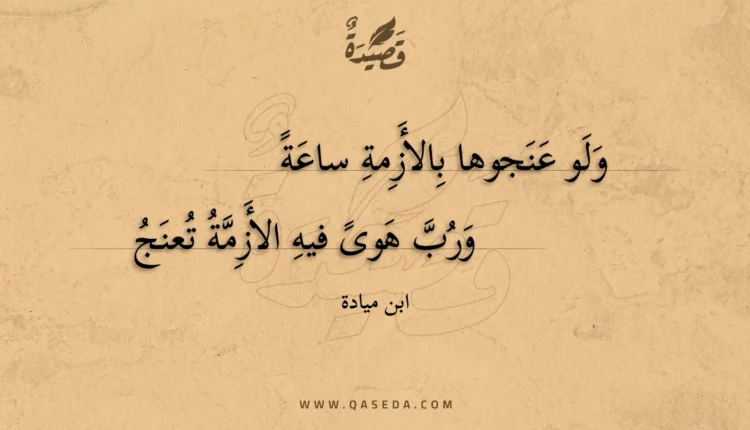 قَصِيْدَةٌ
وَلَو عَنَجوها بِالأَزِمةِ ساعَةً
وَرُبَّ هَوىً فيهِ الأَزِمَّةُ تُعنَجُ
ابن ميادة
WWW.QASEDA.COM